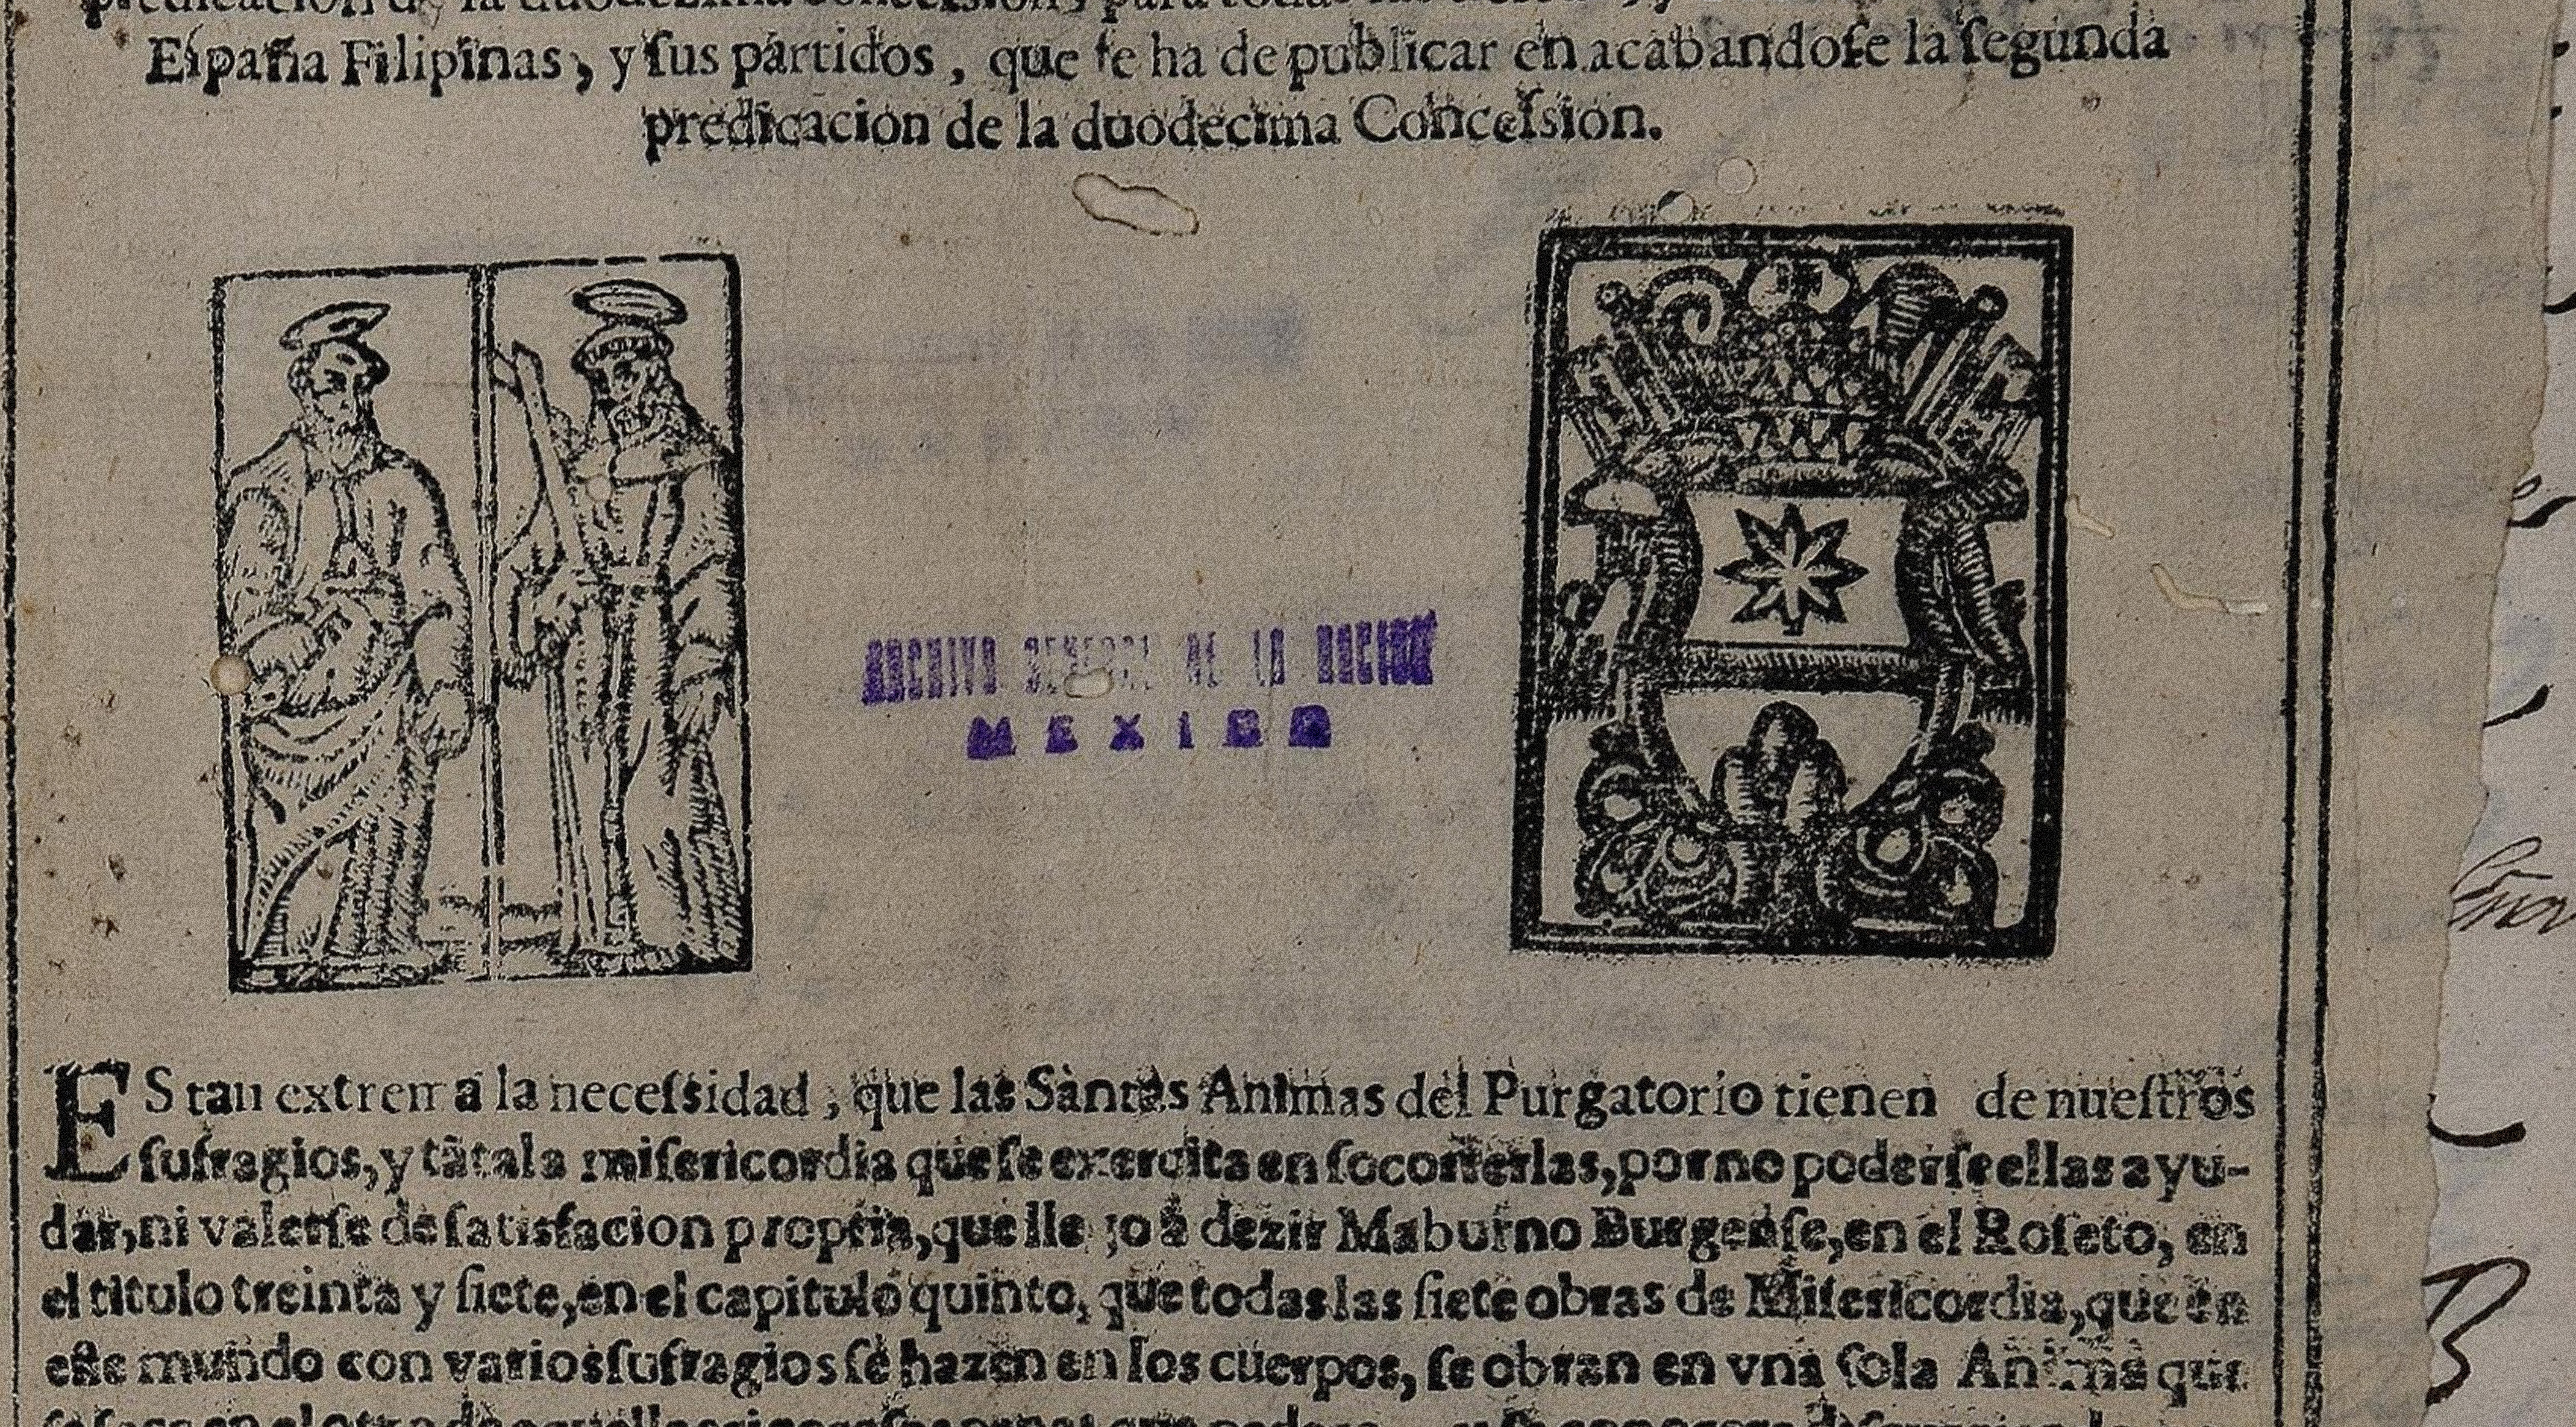 predicacion de la duodezima concession, para todas
España Filipinas, y ſus partidos, que ſe ha de publicar en acabandoſe la ſegunda
predicacion de la duodecima Conceſsion.
ARCHIVO GENERAL DE LA NACION
MEXICO
ES tan extrema la neceſsidad, que las Santas Animas del Purgatorio tienen de nueſtros
ſufragios, y tãta la miſericordia que ſe exercita en ſocorrerlas, por no poderſe ellas ayu-
dar, ni valerſe de ſatisfacion propria, que llegò à dezir Maburno Burgenſe, en el Roſeto, en
el titulo treinta y ſiete, en el capitulo quinto, que todas las ſiete obras de Miſericordia, que en
eſte mundo con varios ſufragios ſe hazen en los cuerpos, ſe obran en vna ſola Anima que